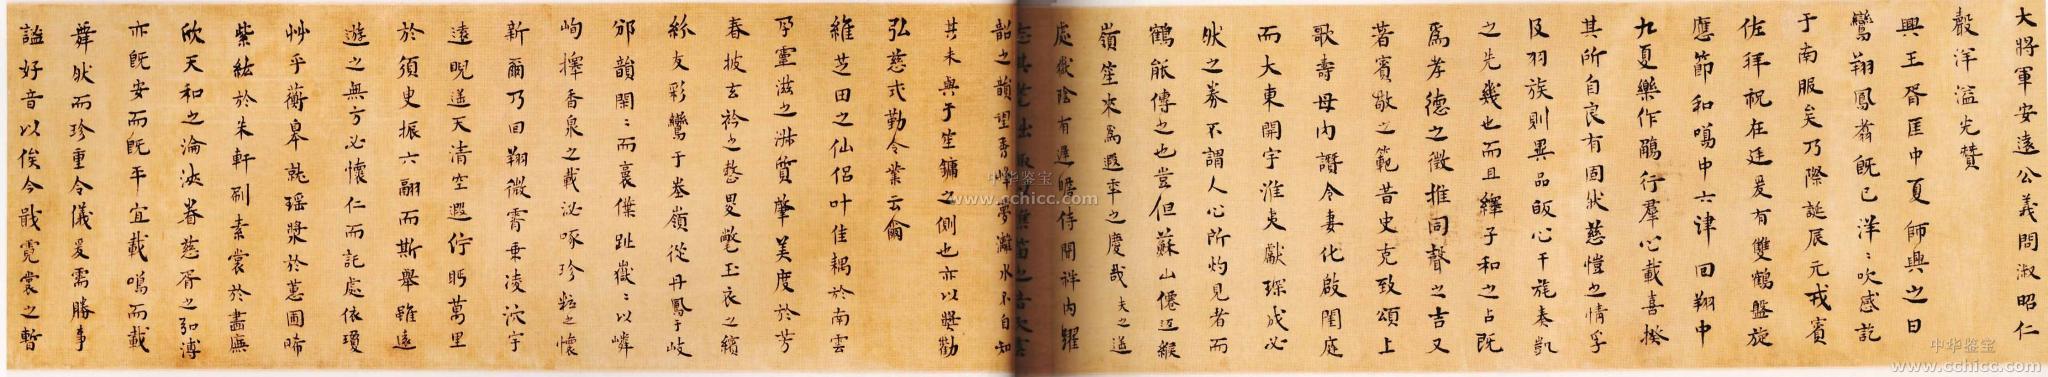 大將軍安遠公義問淑昭仁
聲洋溢先贊
興王胥匡中夏師興之日
鸞翔鳳翥旣已洋〻吹感訖
于南服矣乃際誕辰元戎賓
佐拜祝在廷爰有雙鶴盤旋
應節和鳴中六律回翔中
九夏樂作鵑行羣心載喜揆
其所自良有固然慈愷之情孚
及羽族則異品皈心干旄奏凱
之先幾也而且繹子和之占旣
爲孝德之徵推同聲之吉又
著賓敬之範昔史克致頌上
歌壽母內譖令妻化啟閨庭
而大東開宇淮夷獻琛成必
然之券不謂人心所灼見者而
鶴能傳之也豈但蘇山僊迈緱
嶺笙來爲遐年之慶哉夫之遥
處嶽陰有遲瞻侍開祥內耀
韶之韻望看峰高瀟水不自知
其未與于笙鏞之側也亦以獎勸
弘慈式勤令業云爾
維芝田之仙侶叶佳耦於南雲
孕靈滋之淋質肇美度於芳
春披玄衿之整旻氅玉衣之繽
紛友彩鸞于崣嶺從丹鳳于岐
邠韻閑〻而裹僕趾嶽〻以嶙
峋擇香泉之載泌啄珍粒之懷
新爾乃回翔微霄乗凌泬宇
遠睨遥天清空遐佇眄萬里
於須臾振六翮而斯舉雖遠
遊之無方必懷仁而託處依瓊
艸乎蘅皋就瑶漿於蕙圃啼
紫紘於朱軒刷素裳於畵廡
欣天和之淪浹眷慈胥之弘溥
亦旣安而旣平宜載鳴而載
舞然而珍重令儀爰需勝事
謐好音以俟今戢霓裳之暫
中华鉴宝
www.cchicc.com
中华鉴宝
www.cchicc.com